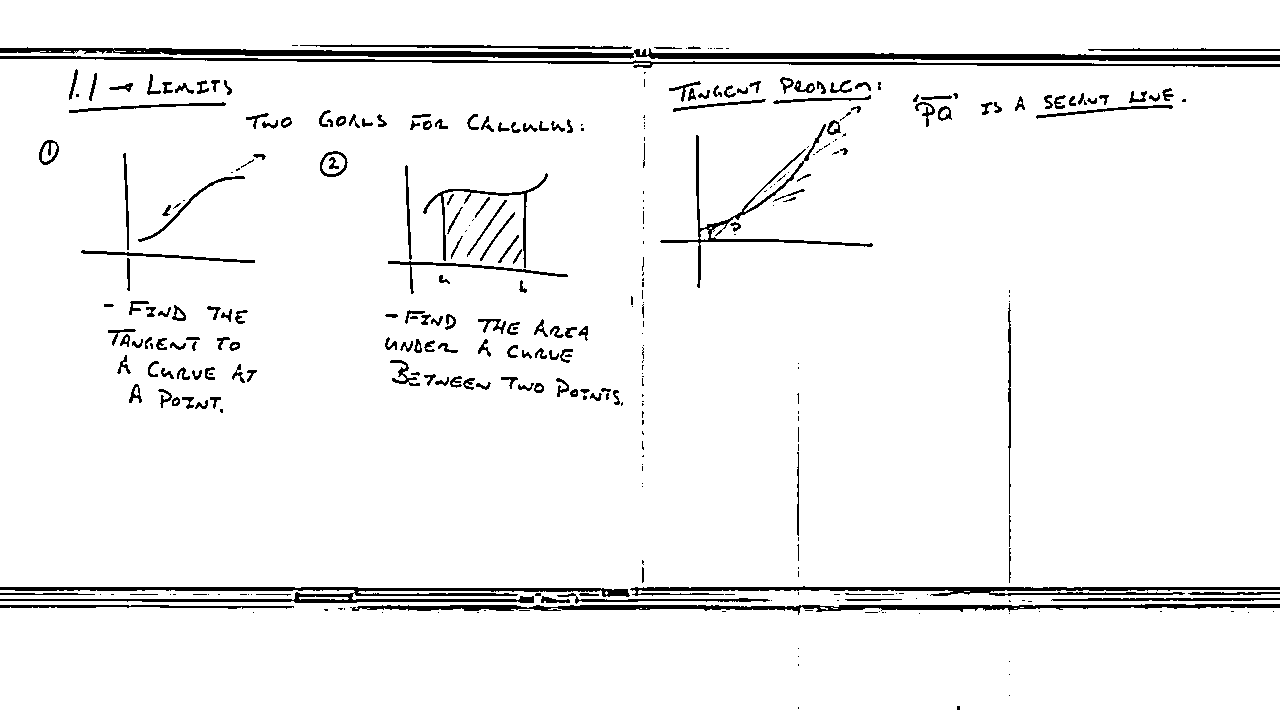 1.1 → LIMITS
TWO GOALS FOR CALCULUS:
①
②
a
b
- FIND THE
TANGENT TO
A CURVE AT
A POINT.
- FIND THE AREA
UNDER A CURVE
BETWEEN TWO POINTS.
TANGENT PROBLEM:
Q
P
"PQ" IS A SECANT LINE.